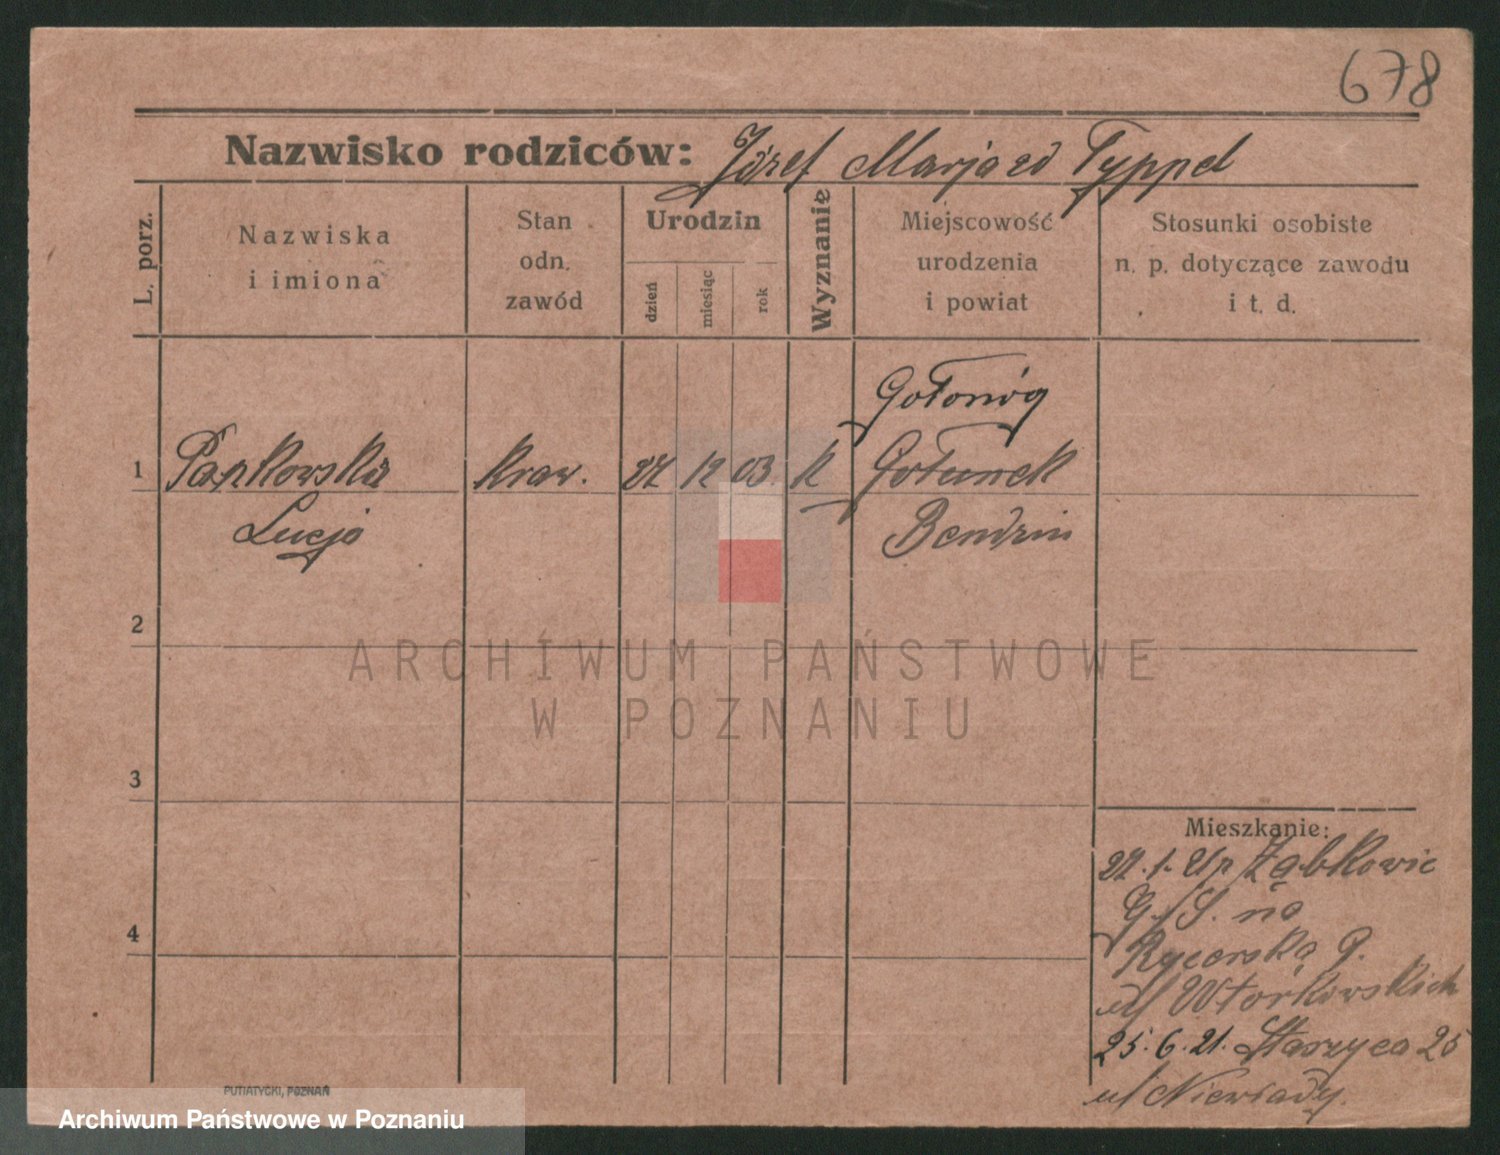 678
Nazwisko rodziców: Józef Marja zd Typpel
L. porz.
Nazwiska
i imiona
Stan
odn.
zawód
Urodzin
dzień
miesiąc
rok
Wyznanie
Miejscowość
urodzenia
i powiat
Stosunki osobiste
n. p. dotyczące zawodu
i t. d.
Gołonóg
1 Pańkowska kraw. 27 12 03 k
Lucja Bendzin
2
3
4
ARCHIWUM PAŃSTWOWE
W POZNANIU
Mieszkanie:
27.1. Ząbkowic
G/S. na
Rycerska 9.
u/ Wtorkowskich
25.6.21. Starzyca 25
u/ Niewiady.
PUTIATYCKI, POZNAŃ
Archiwum Państwowe w Poznaniu